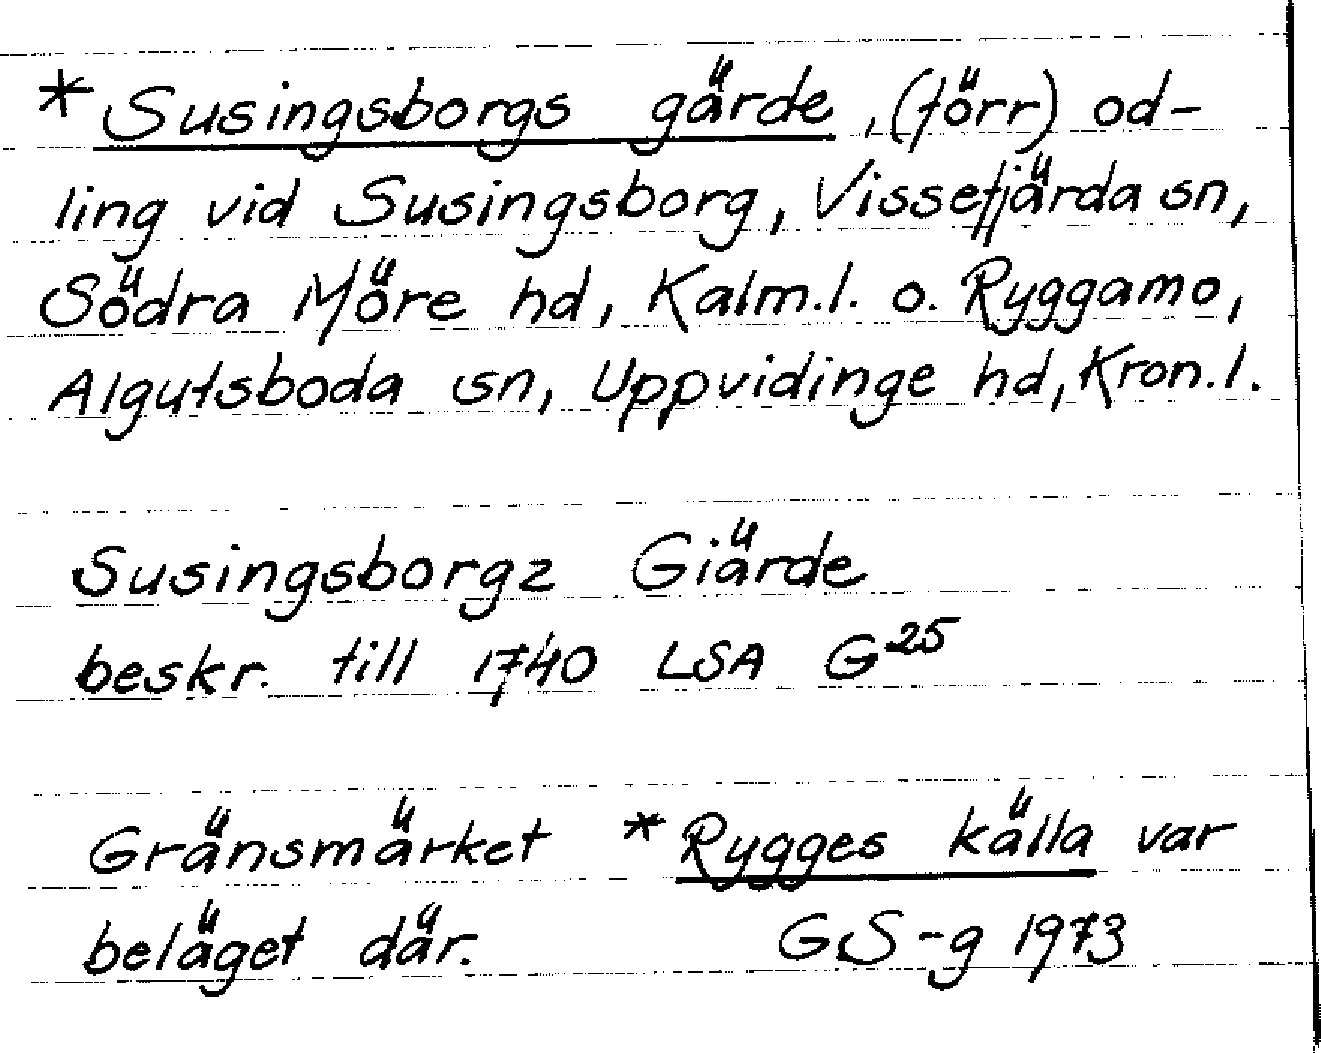 *Susingsborgs gärde, (förr) od-
ling vid Susingsborg, Vissefjärda sn,
Södra Möre hd, Kalm.l. o. Ryggamo,
Algutsboda sn, Uppvidinge hd, Kron.l.
Susingsborgz Giärde
beskr. till 1740 LSA G25
Gränsmärket *Rygges källa var
beläget där. GS-g 1973